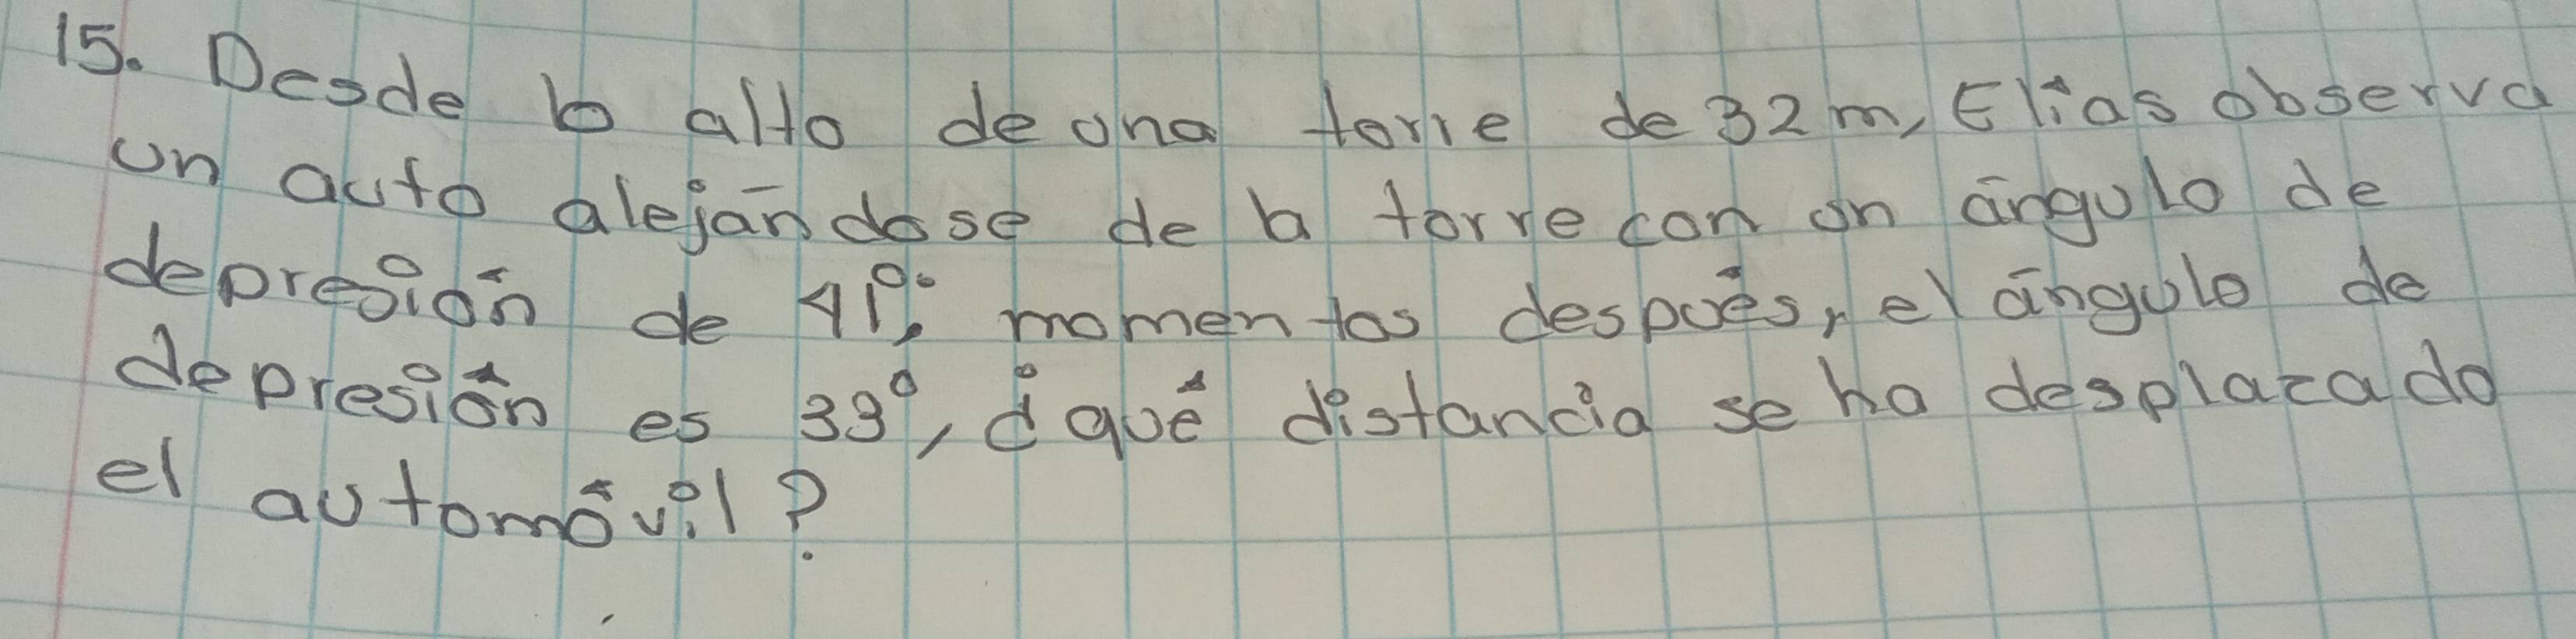 15. Desde lo alto de una torre de 32 m, Elías observa
un auto alejándose de la torre con un ángulo de
depresión de 41°; momentos después, el ángulo de
depresión es 33°, ¿qué distancia se ha desplazado
el automóvil?